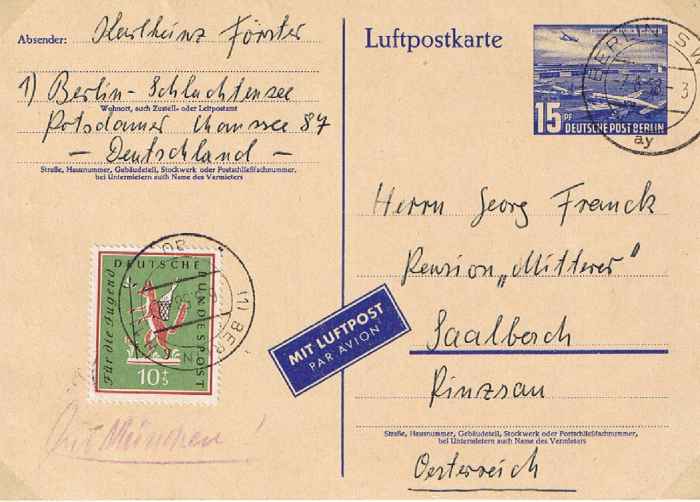 Absender: Karlheinz Förster
1) Berlin-Schlachtensee
Wohnort, auch Zustell- oder Leitpostamt
Potsdamer Chaussee 87
- Deutschland -
Straße, Hausnummer, Gebäudeteil, Stockwerk oder Postschließfachnummer,
bei Untermietern auch Name des Vermieters
Luftpostkarte
15 PF
DEUTSCHE POST BERLIN
BERLIN SW
3
ay
Herrn Georg Franck
Pension „Mitterer"
Saalbach
Pinzgau
Straße, Hausnummer, Gebäudeteil, Stockwerk oder Postschließfachnummer,
bei Untermietern auch Name des Vermieters
Oesterreich
MIT LUFTPOST
PAR AVION
Für die Jugend
DEUTSCHE
BUNDESPOST
(1) BERLIN
München!